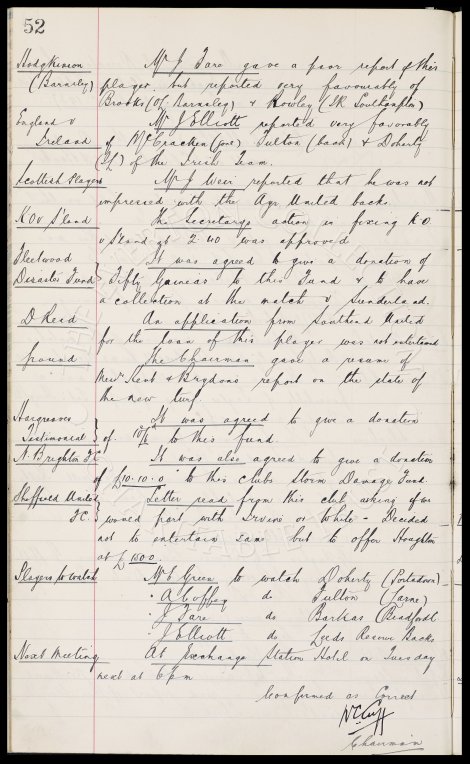 52
Hodgkinson Mr J. Fare gave a poor report of this
(Barnsley) player but reported very favourably of
Brooks (of Barnsley) & Rowley (IR Southampton)
England v Mr J Elliott reported very favorably
Ireland of McCracken (one) Fulton (back) & Doherty
of the Irish Team.
Scottish Players Mr J Weir reported that he was not
impressed with the Ayr United backs
KO v S'land The Secretarys action in fixing K.O.
v S'land at 2.40 was approved
Fleetwood It was agreed to give a donation of
Disaster Fund Fifty Guineas to this Fund & to have
a collection at the match v Sunderland.
D Read An application from Southend United
for the loan of this player was not entertained
Ground The Chairman gave a resume of
Messrs Kent & Brydons report on the state of
the new turf.
Hargreaves It was agreed to give a donation
Testimonial of 10/6 to this fund.
N. Brighton F.C It was also agreed to give a donation
of £10.10.0 to this clubs Storm Damage Fund.
Sheffield United Letter read from this club asking if we
F.C. would part with Irvine or White - Decided
not to entertain same but to offer Houghton
at £1500.
Players to watch Mr E Green to watch Doherty (Portadown)
" A Coffey do Fulton (Larne)
" J Fare do Barkas (Bradford)
" J Elliott do Leeds Reserve Backs
Next Meeting At Exchange Station Hotel on Tuesday
next at 6 pm
Confirmed as Correct
W C Cuff
Chairman